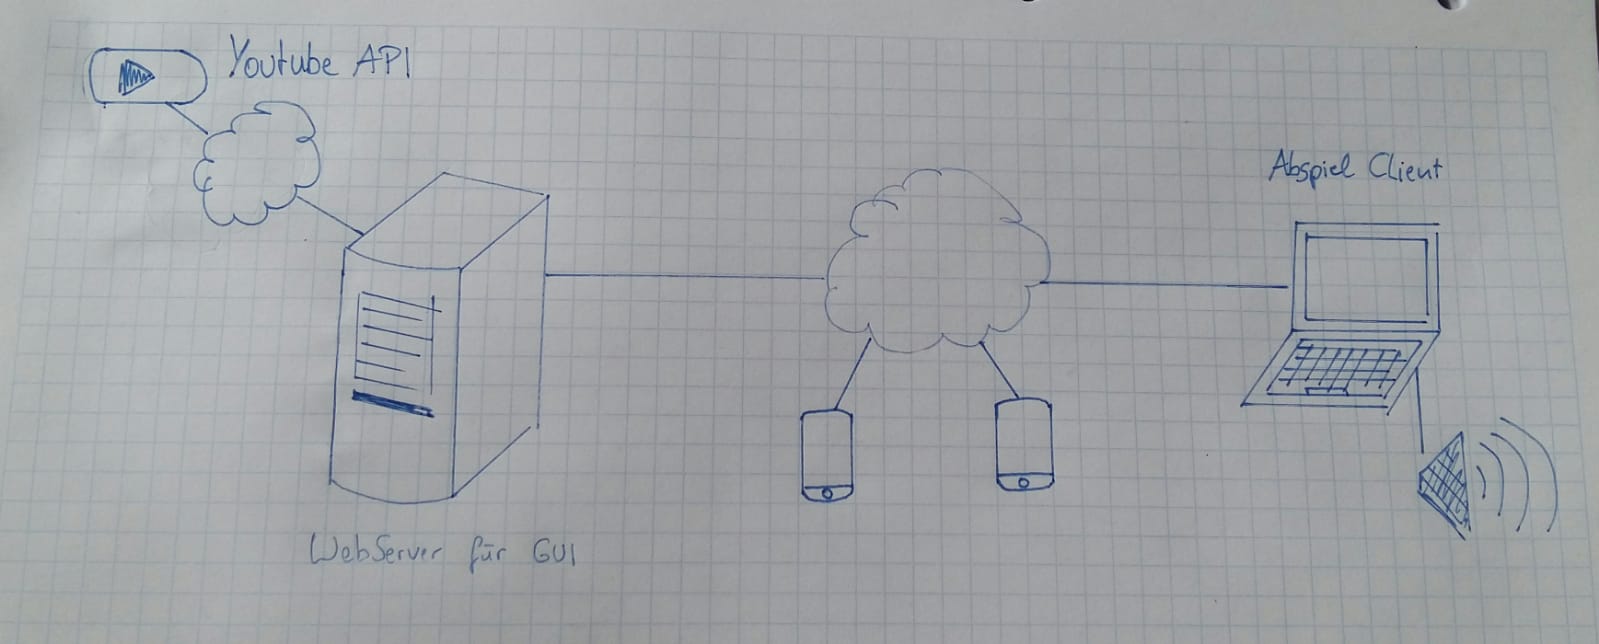 Youtube API
Abspiel Client
WebServer für GUI